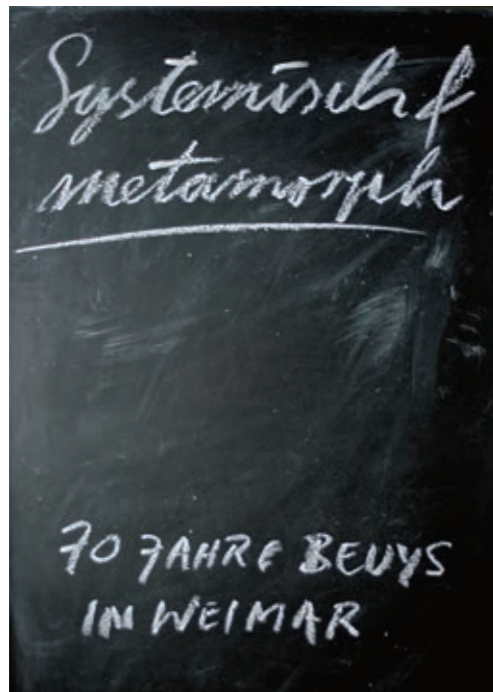 Systemisch &
metamorph
70 JAHRE BEUYS
IN WEIMAR